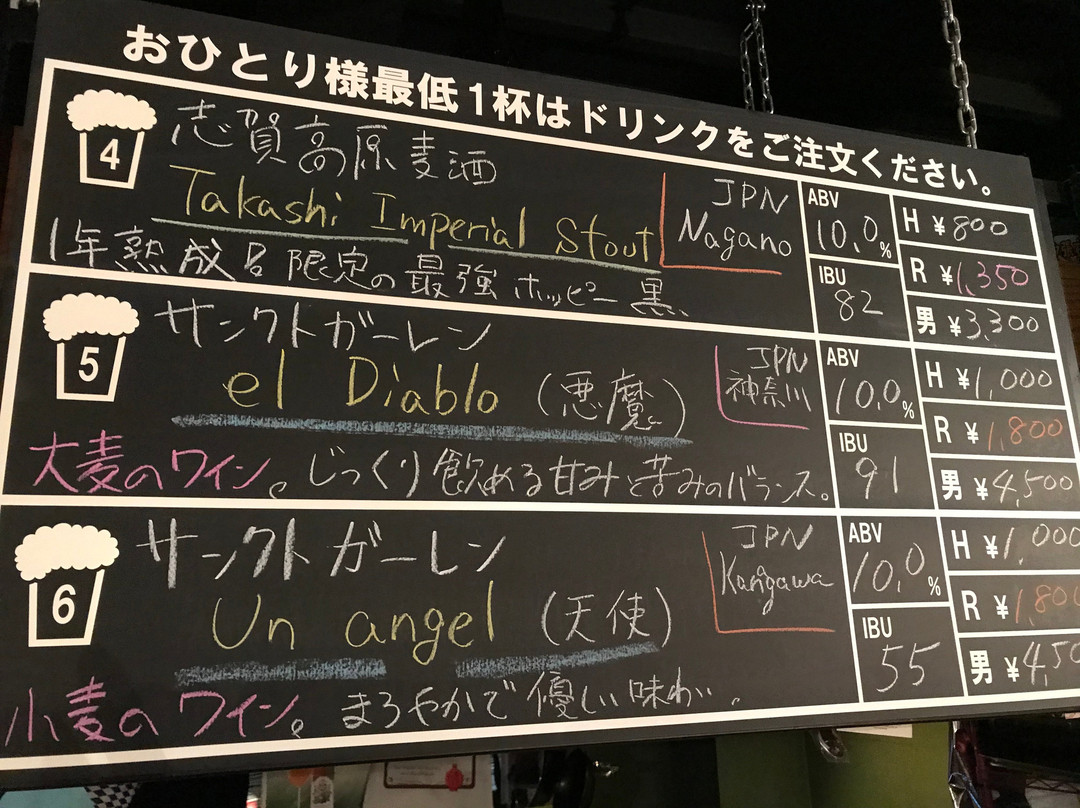 おひとり様最低1杯はドリンクをご注文ください。
4
志賀高原麦酒
Takashi Imperial Stout
1年熟成 限定の最強ホッピー黒、
JPN
Nagano
ABV
10.0%
IBU
82
H ¥800
R ¥1,350
男 ¥3,300
5
サンクトガーレン
el Diablo (悪魔)
大麦のワイン。じっくり飲める甘みと苦みのバランス。
JPN
神奈川
ABV
10.0%
IBU
91
H ¥1,000
R ¥1,800
男 ¥4,500
6
サンクトガーレン
Un angel (天使)
小麦のワイン。まろやかで優しい味わい。
JPN
Kanagawa
ABV
10.0%
IBU
55
H ¥1,000
R ¥1,800
男 ¥4,50